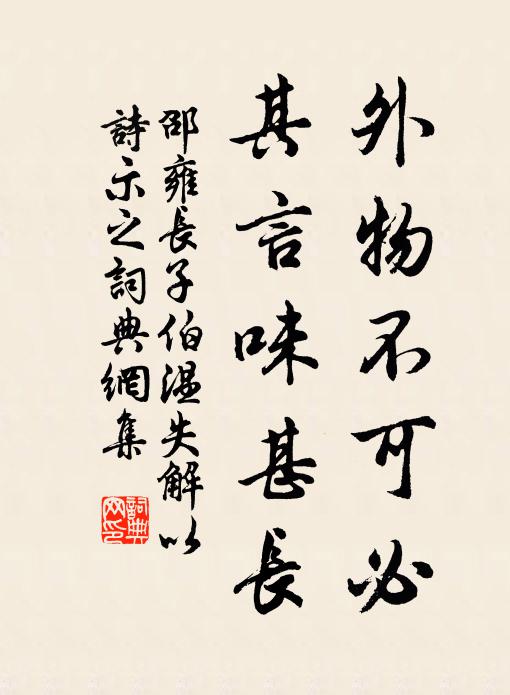 外物不可必
其言味甚長
邵雍長子伯溫失解以
詩示之詞典網集
詞典
网印